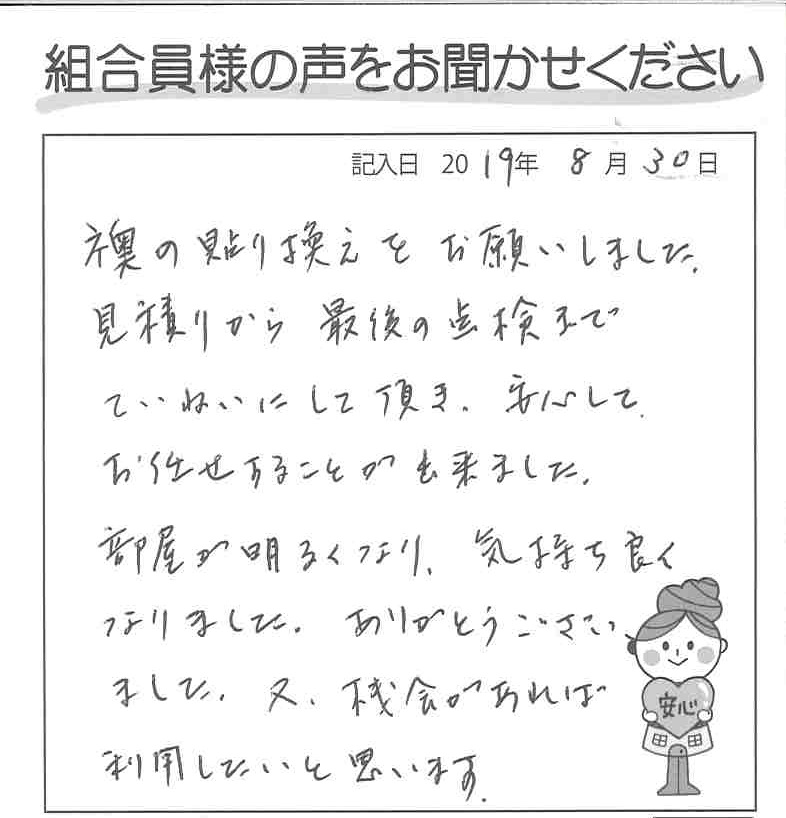 組合員様の声をお聞かせください
記入日 2019年 8月30日
襖の貼り換えをお願いしました。
見積りから最後の点検まで
ていねいにして頂き、安心して
お任せすることが出来ました。
部屋が明るくなり、気持ち良く
なりました。ありがとうござい
ました。又、機会があれば
利用したいと思います。
安心